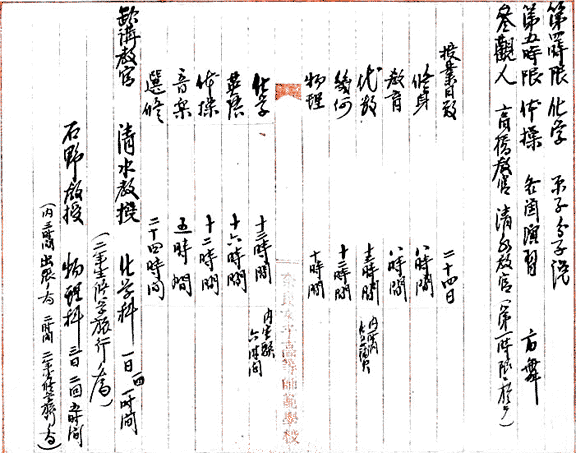 第四時限 化学 原子分子説
第五時限 体操 各個演習 方舞
参観人 高橋教官 清水教官(第一時限)
授業日数 二十四日
修身 八時間
教育 八時間
代数 十三時間
幾何 十二時間
物理 十時間
化学 十三時間 内実験六時間
英語 十六時間
体操 十二時間
音楽 五時間
選修 二十四時間
欠講教官 清水教授 化学科 一日 一時間
(二年生修学旅行ノ為)
石野教授 物理科 三日 二回 五時間
(内三時間出張ノ為 二時間 二年生修学旅行ノ為)
奈良女子高等師範学校